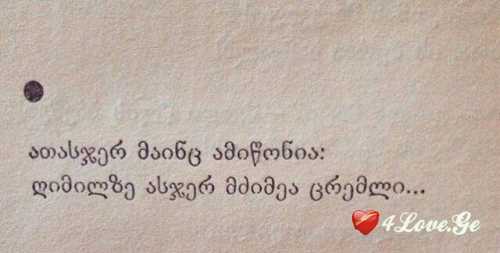 ათასჯერ მაინც ამიწონია:
ღიმილზე ასჯერ მძიმეა ცრემლი...
4Love.Ge